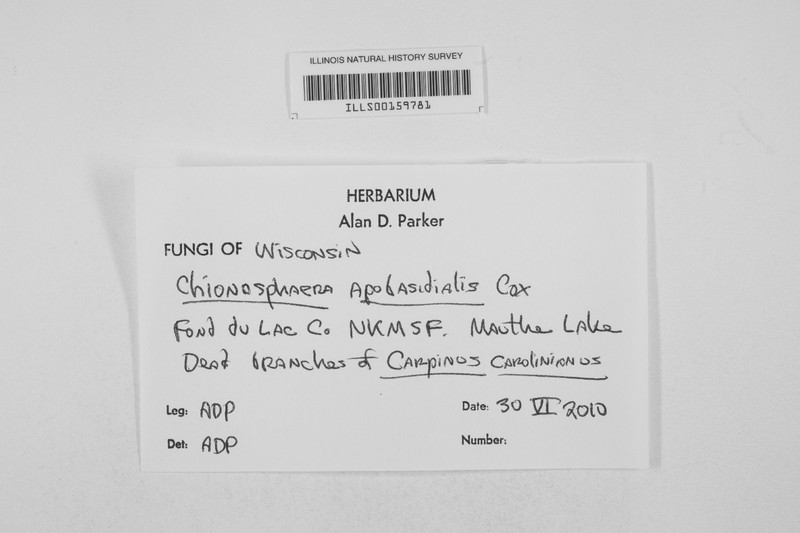 ILLINOIS NATURAL HISTORY SURVEY
ILLS00159781
HERBARIUM
Alan D. Parker
FUNGI OF Wisconsin
Chionosphaera apobasidialis Cox
Fond du Lac Co NKMSF. Mauthe Lake
Dead branches of Carpinus carolinianus
Leg: ADP
Date: 30 VI 2010
Det: ADP
Number: